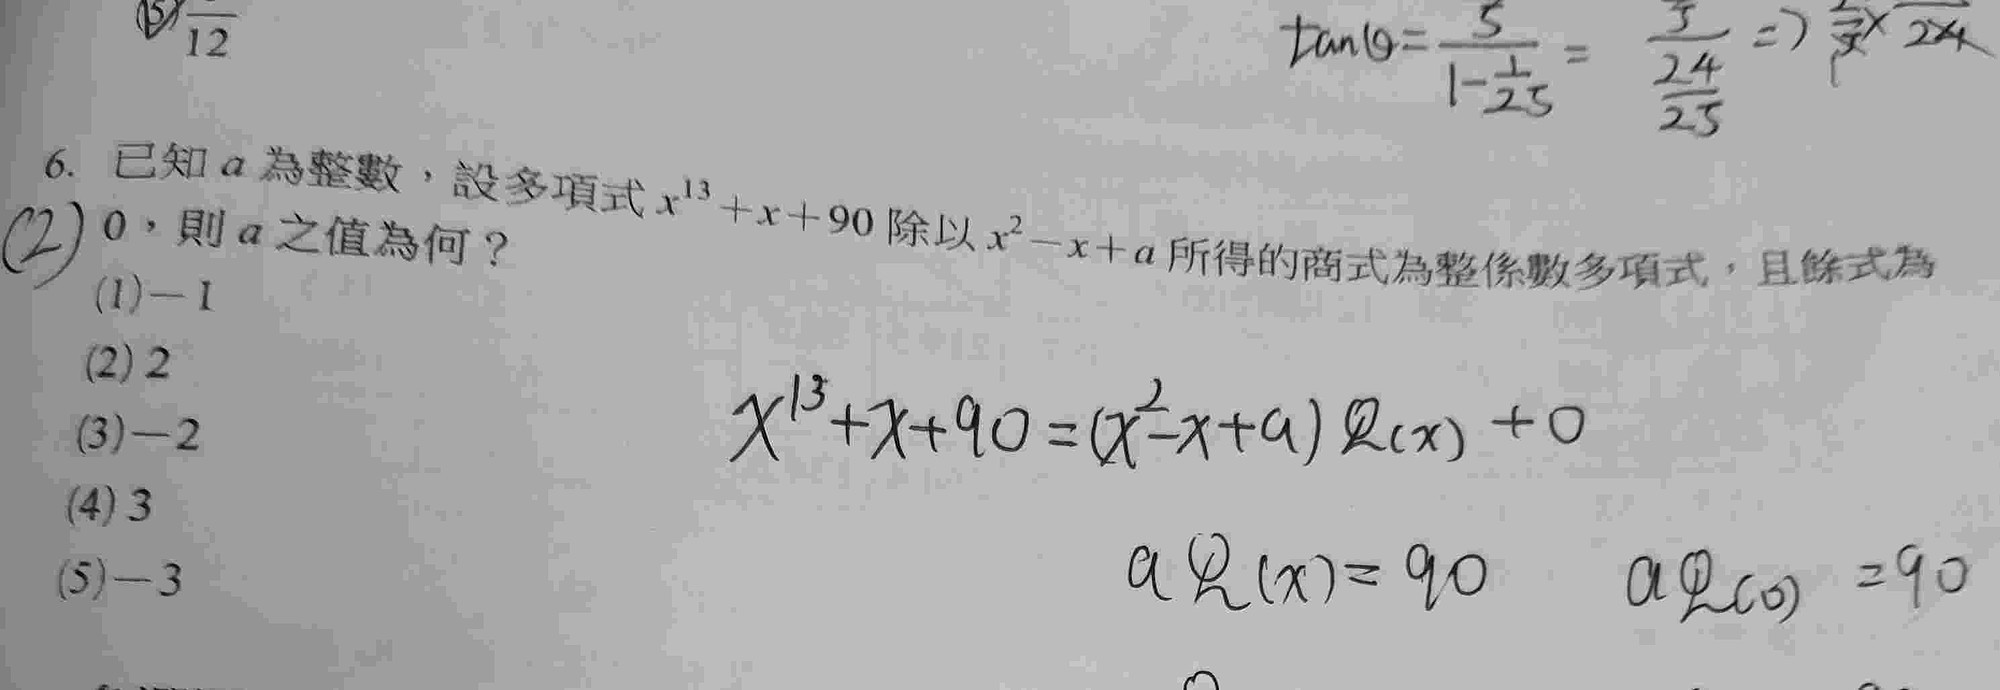 (5) 12
tanθ = 5 / (1 - 1/25) = 5 / (24/25) =>
6. 已知 a 為整數，設多項式 x¹³+x+90 除以 x²−x+a 所得的商式為整係數多項式，且餘式為
(2) 0，則 a 之值為何？
(1)−1
(2) 2
(3)−2
(4) 3
(5)−3
x¹³+x+90=(x²-x+a) Q(x) +0
a Q(x) = 90 a Q(0) = 90